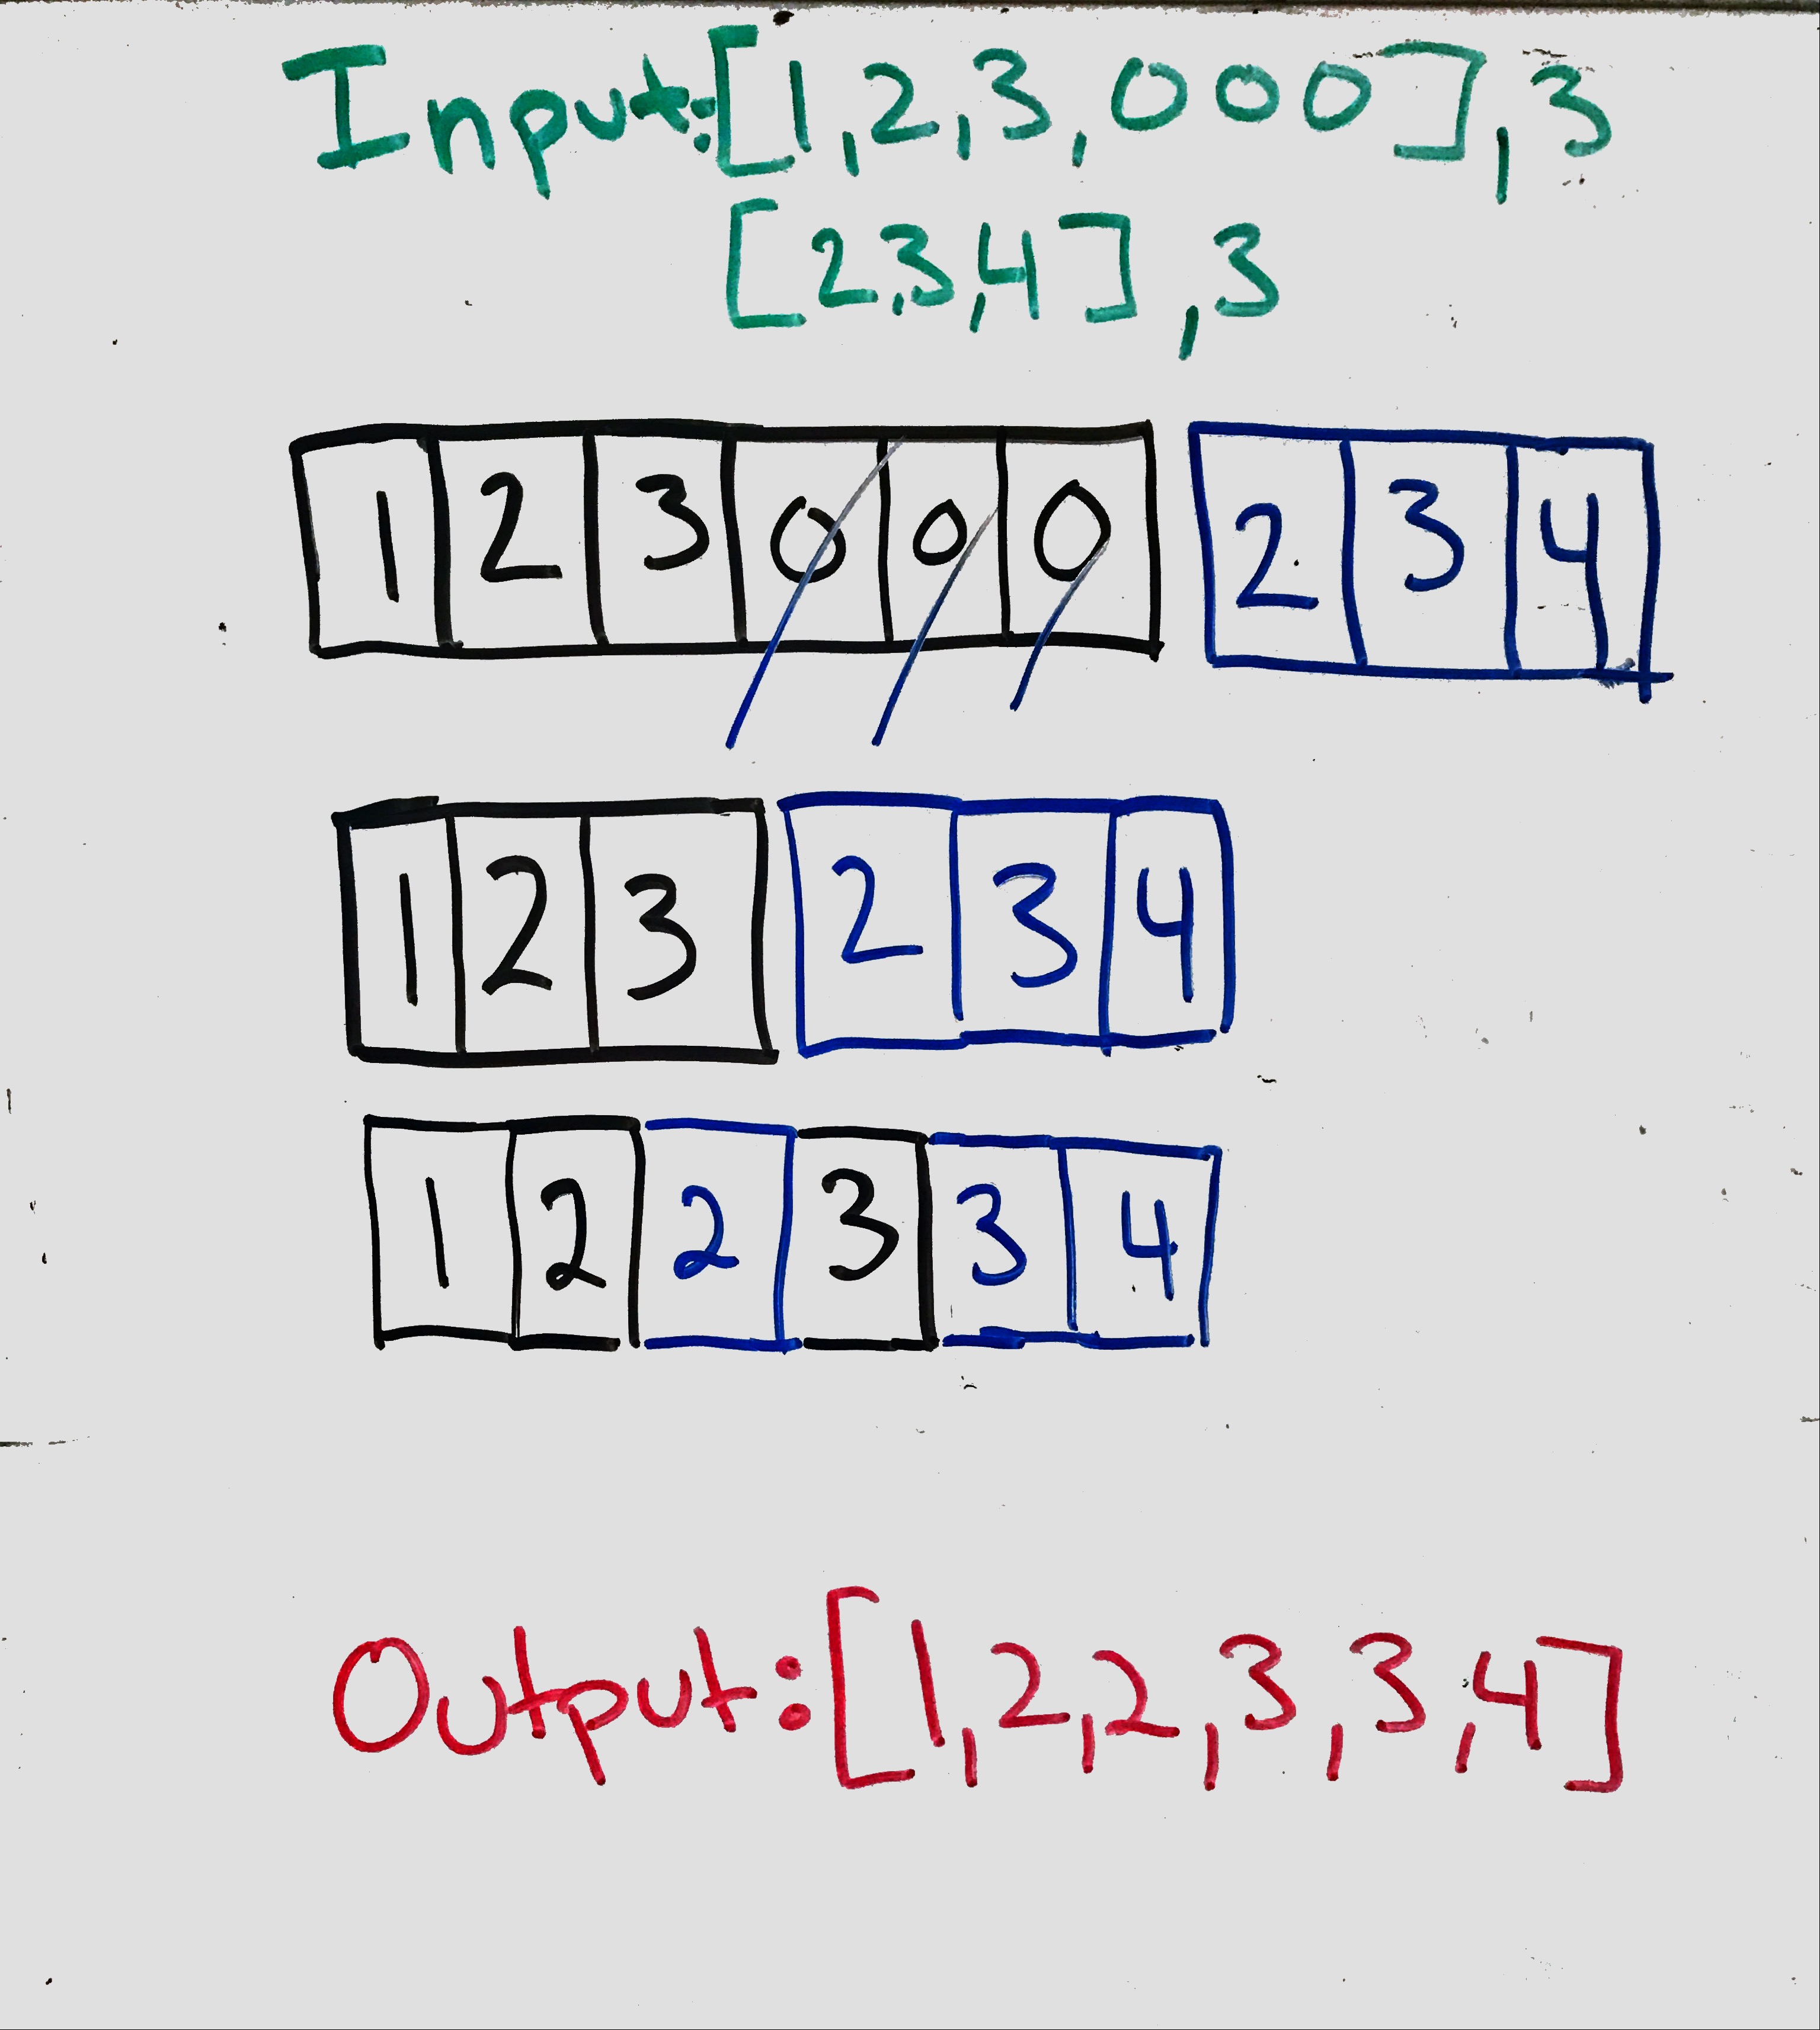 Input:[1,2,3,000],3
[2,3,4],3
1 2 3 0 0 0 2 3 4
1 2 3 2 3 4
1 2 2 3 3 4
Output:[1,2,2,3,3,4]